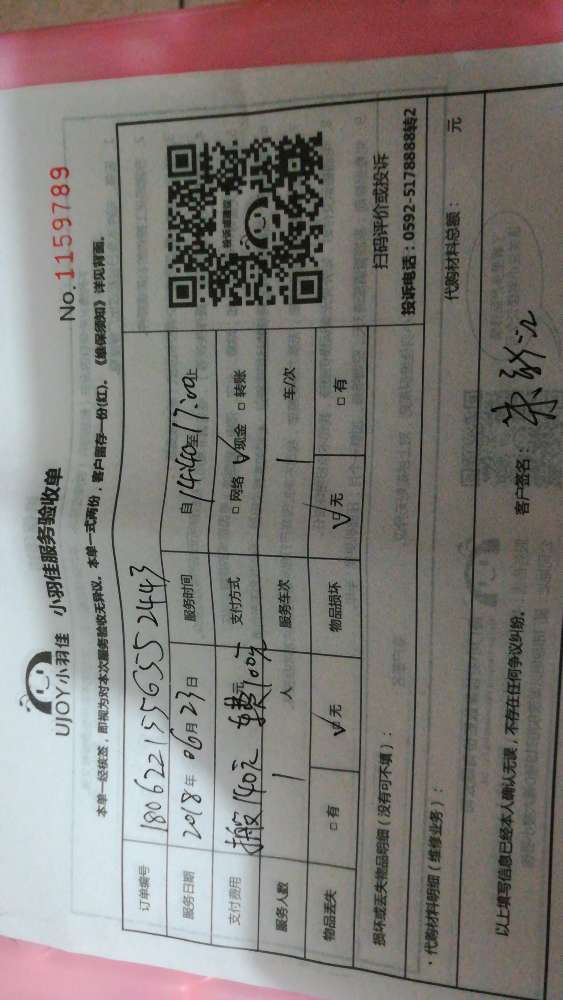 UJOY小羽佳 小羽佳服务验收单
No. 1159789
本单一经核签，即视为对本次服务验收无异议。本单一式两份，客户留存一份(红)。《维保须知》详见背面。
订单编号 180622155635552443
服务日期 2018年06月23日 服务时间 自14:40至17:00止
支付费用 搬140元 车费100元 支付方式 □网络 ☑现金 □转账
服务人数 1 人 服务车次 1 车/次
物品丢失 □有 ☑无 物品损坏 ☑无 □有
投诉或建议
扫码评价或投诉
投诉电话：0592-5178888转2
损坏或丢失物品明细（没有可不填）：
·代购材料明细（维修业务）： 代购材料总额： 元
以上填写信息已经本人确认无误，不存在任何争议纠纷。 客户签名：